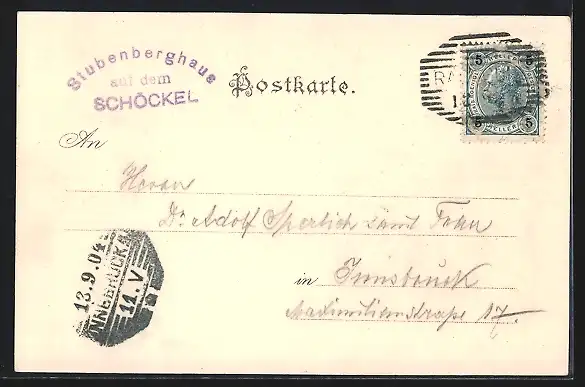 Stubenberghaus
auf dem
SCHÖCKEL
Postkarte.
5 5
HELLER
5 5
An
Herrn
Dr. Adolf Sperlich samt Frau
in Innsbruck
Maximilianstraße 17.
13.9.04
INNSBRUCK
11.V